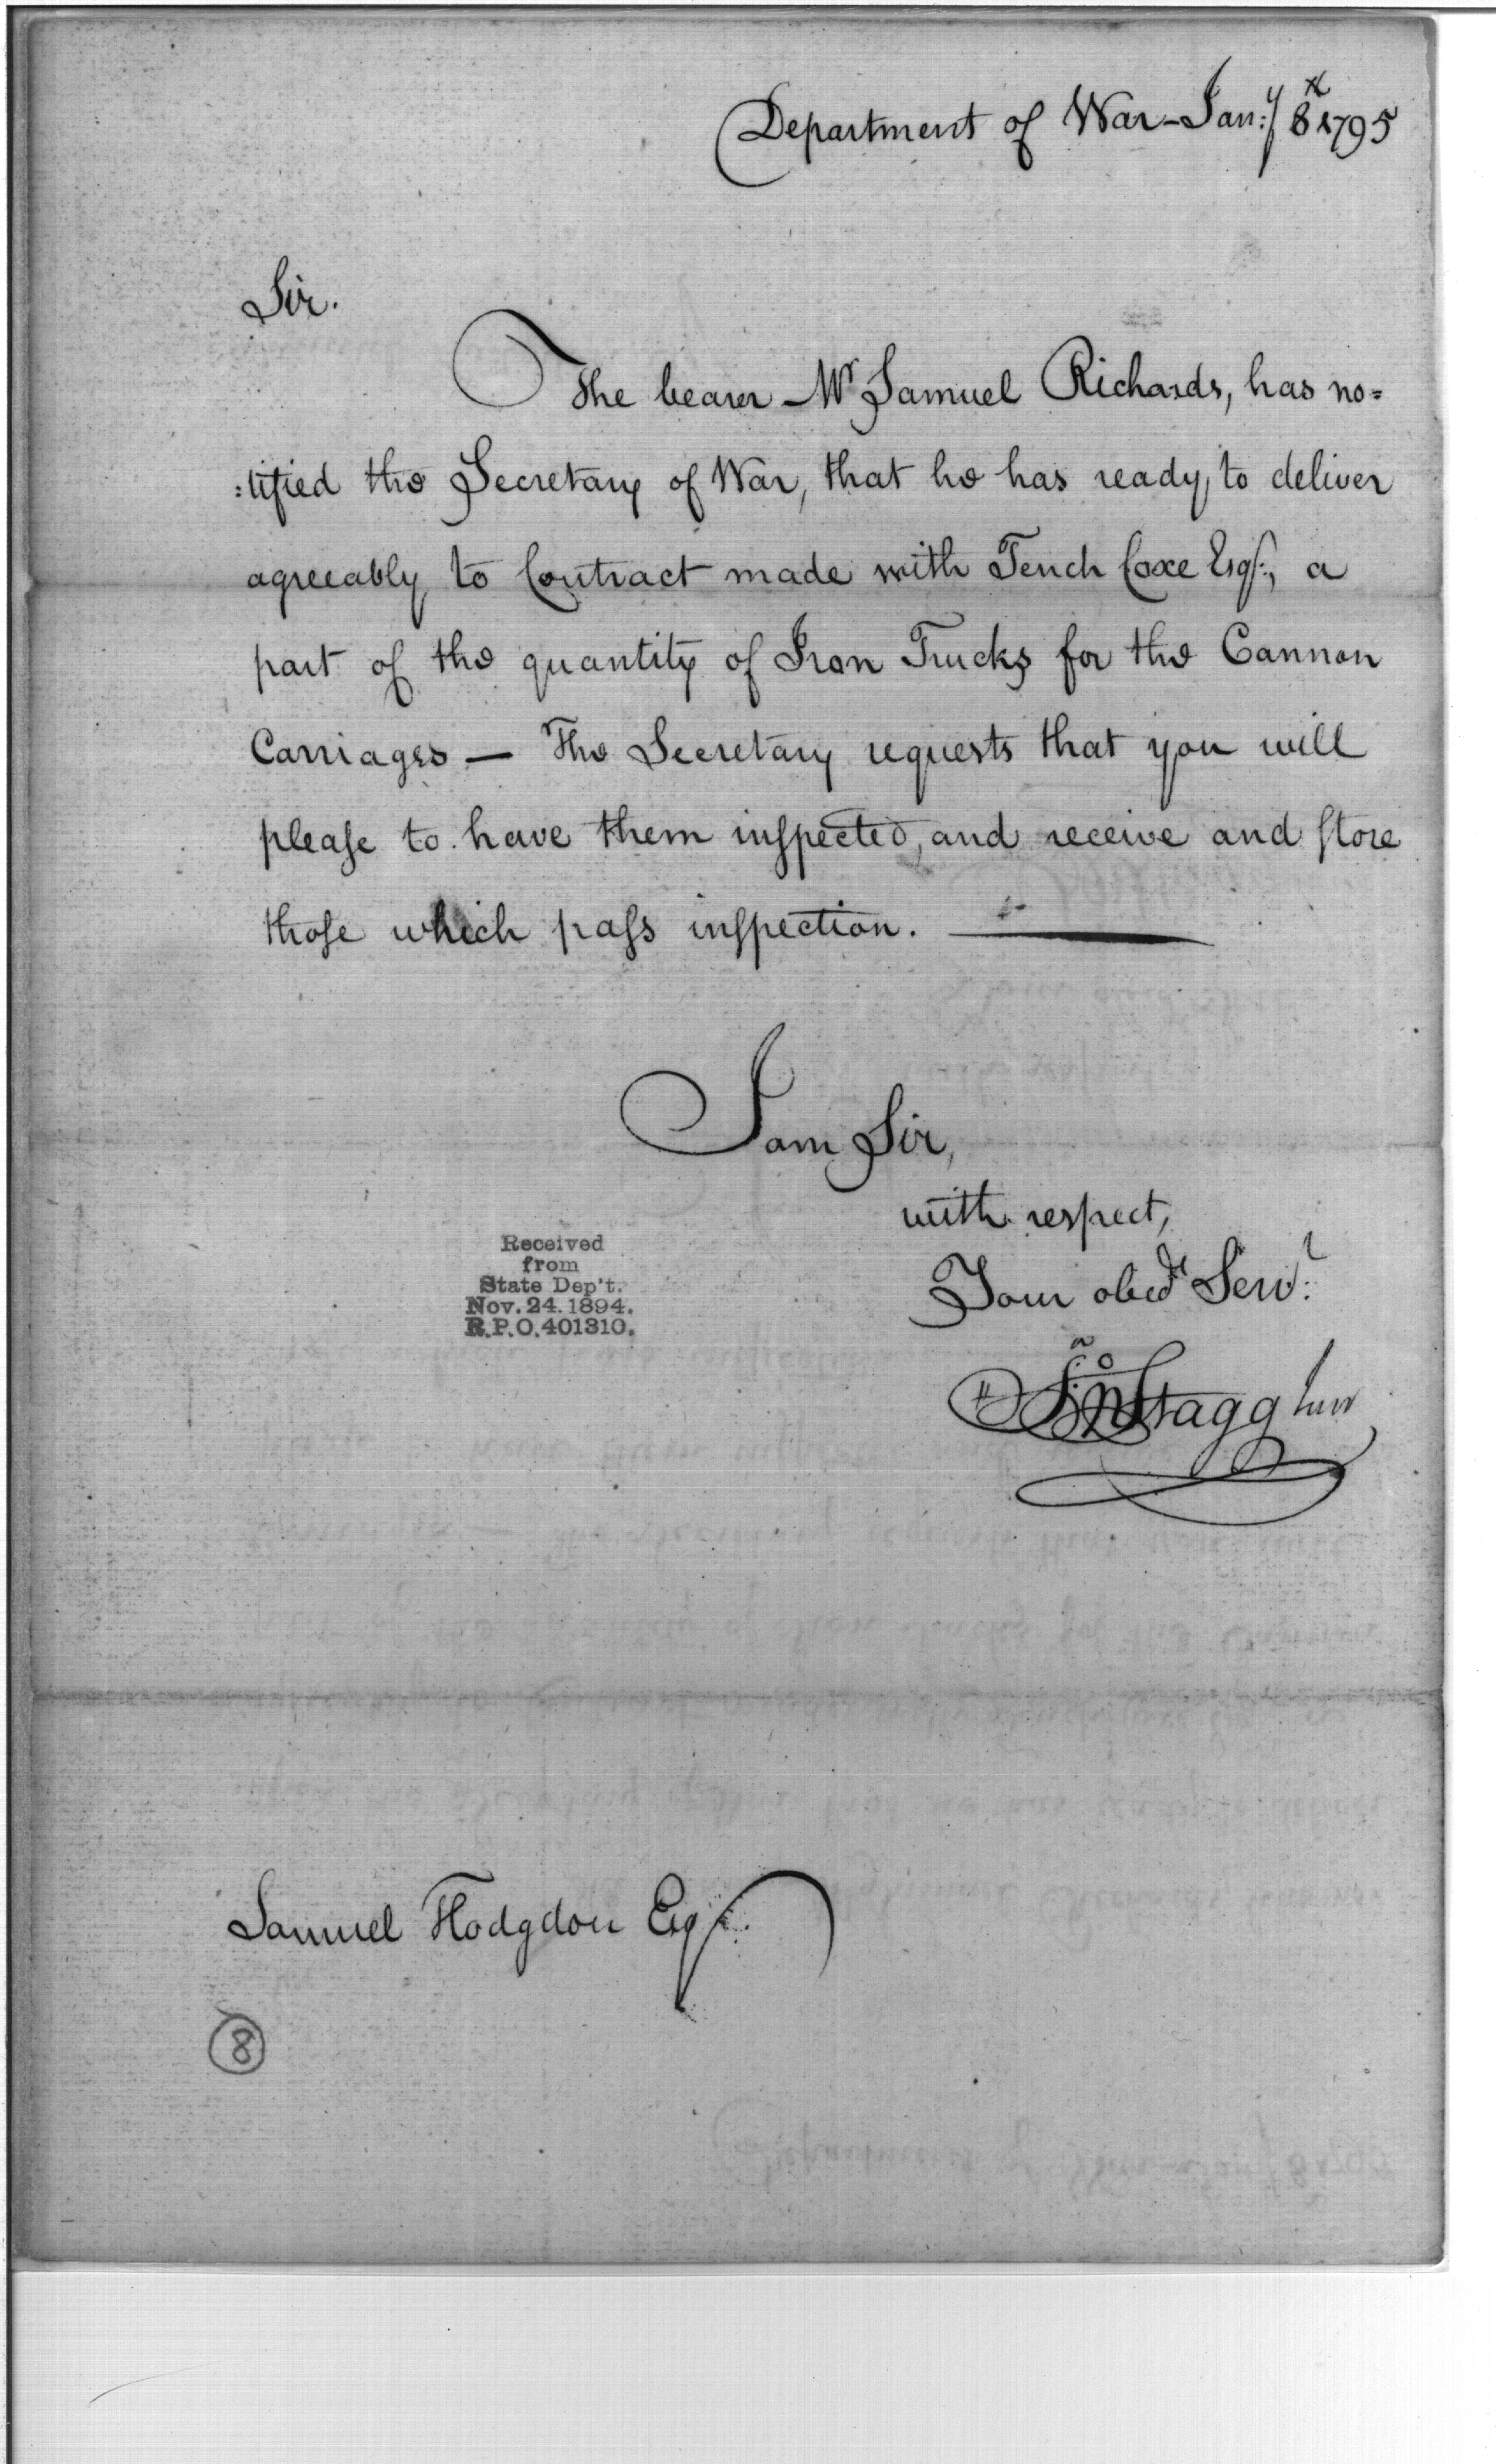 Department of War - Jany. 8th 1795
Sir.
The bearer Mr Samuel Richards, has no=
:tified the Secretary of War, that he has ready, to deliver
agreeably to Contract made with Tench Coxe Esqr., a
part of the quantity of Iron Trucks for the Cannon
Carriages — The Secretary requests that you will
please to have them inspected, and receive and store
those which pass inspection. —
I am Sir,
with respect,
Your obedt Servt.
Received
from
State Dep't.
Nov. 24. 1894.
R.P.O. 401310.
Jno Stagg Junr
Samuel Hodgdon Esqr.
8